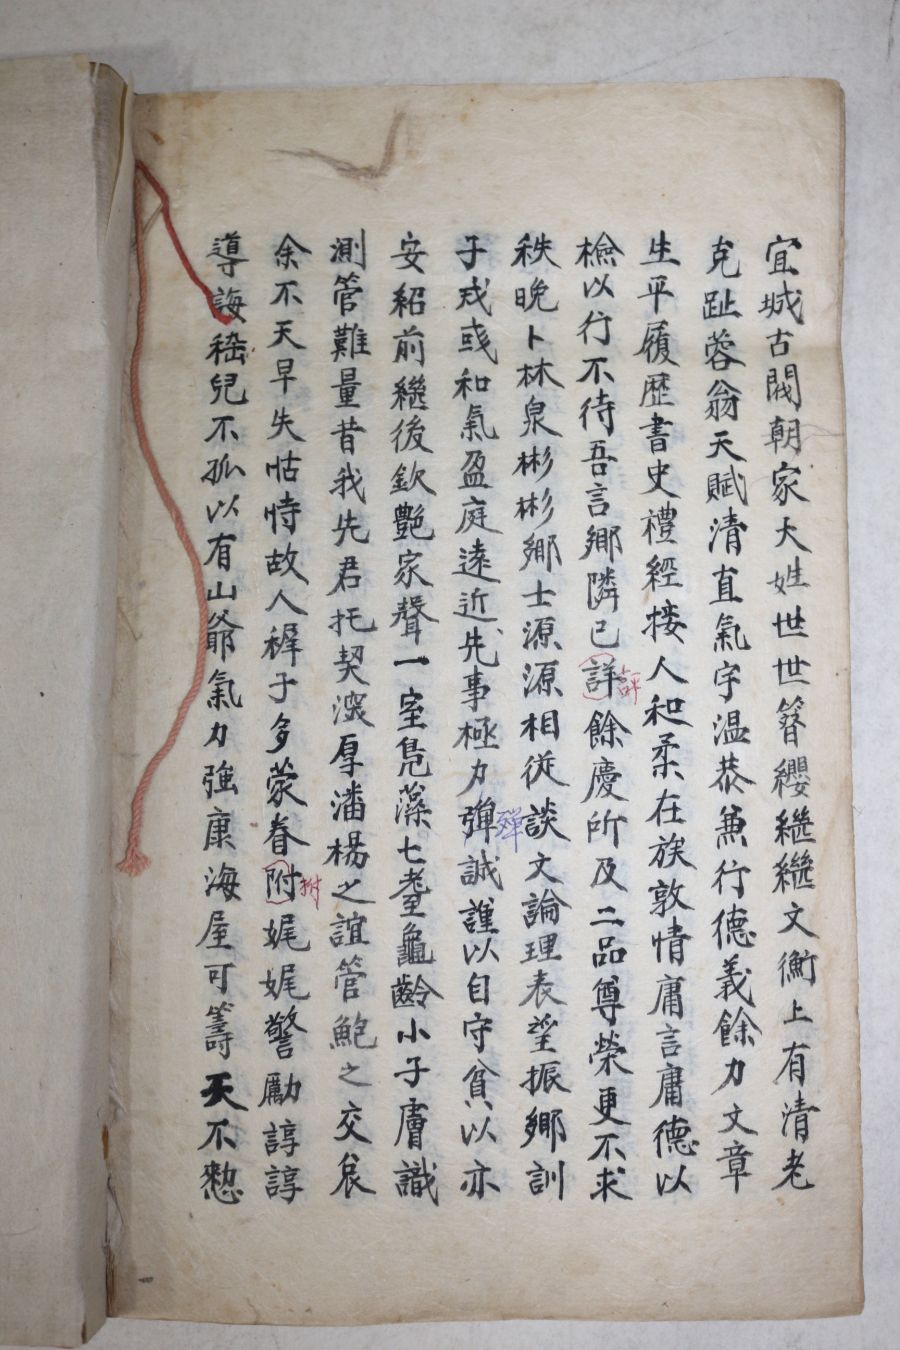 宜城古閥朝家大姓世世簪纓繼繼文衡上有清老
克趾蓉翁天賦清直氣字温恭兼行德義餘力文章
生平履歷書史禮經接人和柔在族敦情庸言庸德以
檢以行不待吾言鄉隣已詳餘慶所及二品尊榮更不求
評
秩晚卜林泉彬彬鄉士源源相從談文論理表望振鄉訓
子戎彧和氣盈庭遠近先事極力彈誠謹以自守貧以亦
殫
安紹前繼後欽艶家聲一室鳧藻七耋龜齡小子膚識
測管難量昔我先君托契深厚潘楊之誼管鮑之交哀
余不天早失怙恃故人穉子多蒙眷附娓娓警勵諄諄
拊
導誨嵇兒不孤以有山爺氣力強康海屋可籌天不憖